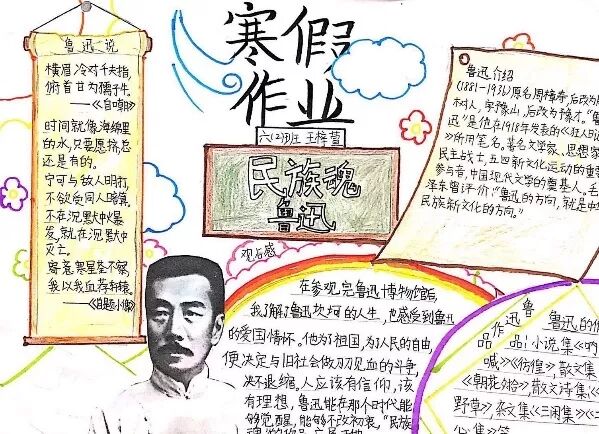 鲁迅说
横眉冷对千夫指,
俯首甘为孺子牛。
——《自嘲》
时间就像海绵里
的水,只要愿挤,总
还是有的。
宁可与敌人明打,
不欲受同人暗算。
不在沉默中爆
发,就在沉默中
灭亡。
寄意寒星荃不察,
我以我血荐轩辕。
——《自题小像》
寒假
作业
六(2)班 王梓萱
民族魂
鲁迅
鲁迅介绍
(1881-1936)原名周樟寿,后改为
树人,字豫山,后改为豫才。“鲁
迅”是他在1918年发表的《狂人日记
》所用笔名。著名文学家、思想家
民主战士,五四新文化运动的重要
参与者,中国现代文学的奠基人。毛
泽东曾评价:“鲁迅的方向,就是中
民族新文化的方向。”
观后感
在参观完鲁迅博物馆后,
我了解了鲁迅坎坷的人生,也感受到鲁迅
的爱国情怀。他为了祖国,为了人民的自由,
便决定与旧社会做刀刃见血的斗争,
决不退缩。人应该有信仰,该
有理想,鲁迅能在那个时代能
够觉醒,能够不改初衷。“民族
鲁迅
作品
鲁迅的作
品:小说集《呐
喊》《彷徨》,散文集
《朝花夕拾》,散文诗集《
野草》杂文集《三闲集》《二
心集》